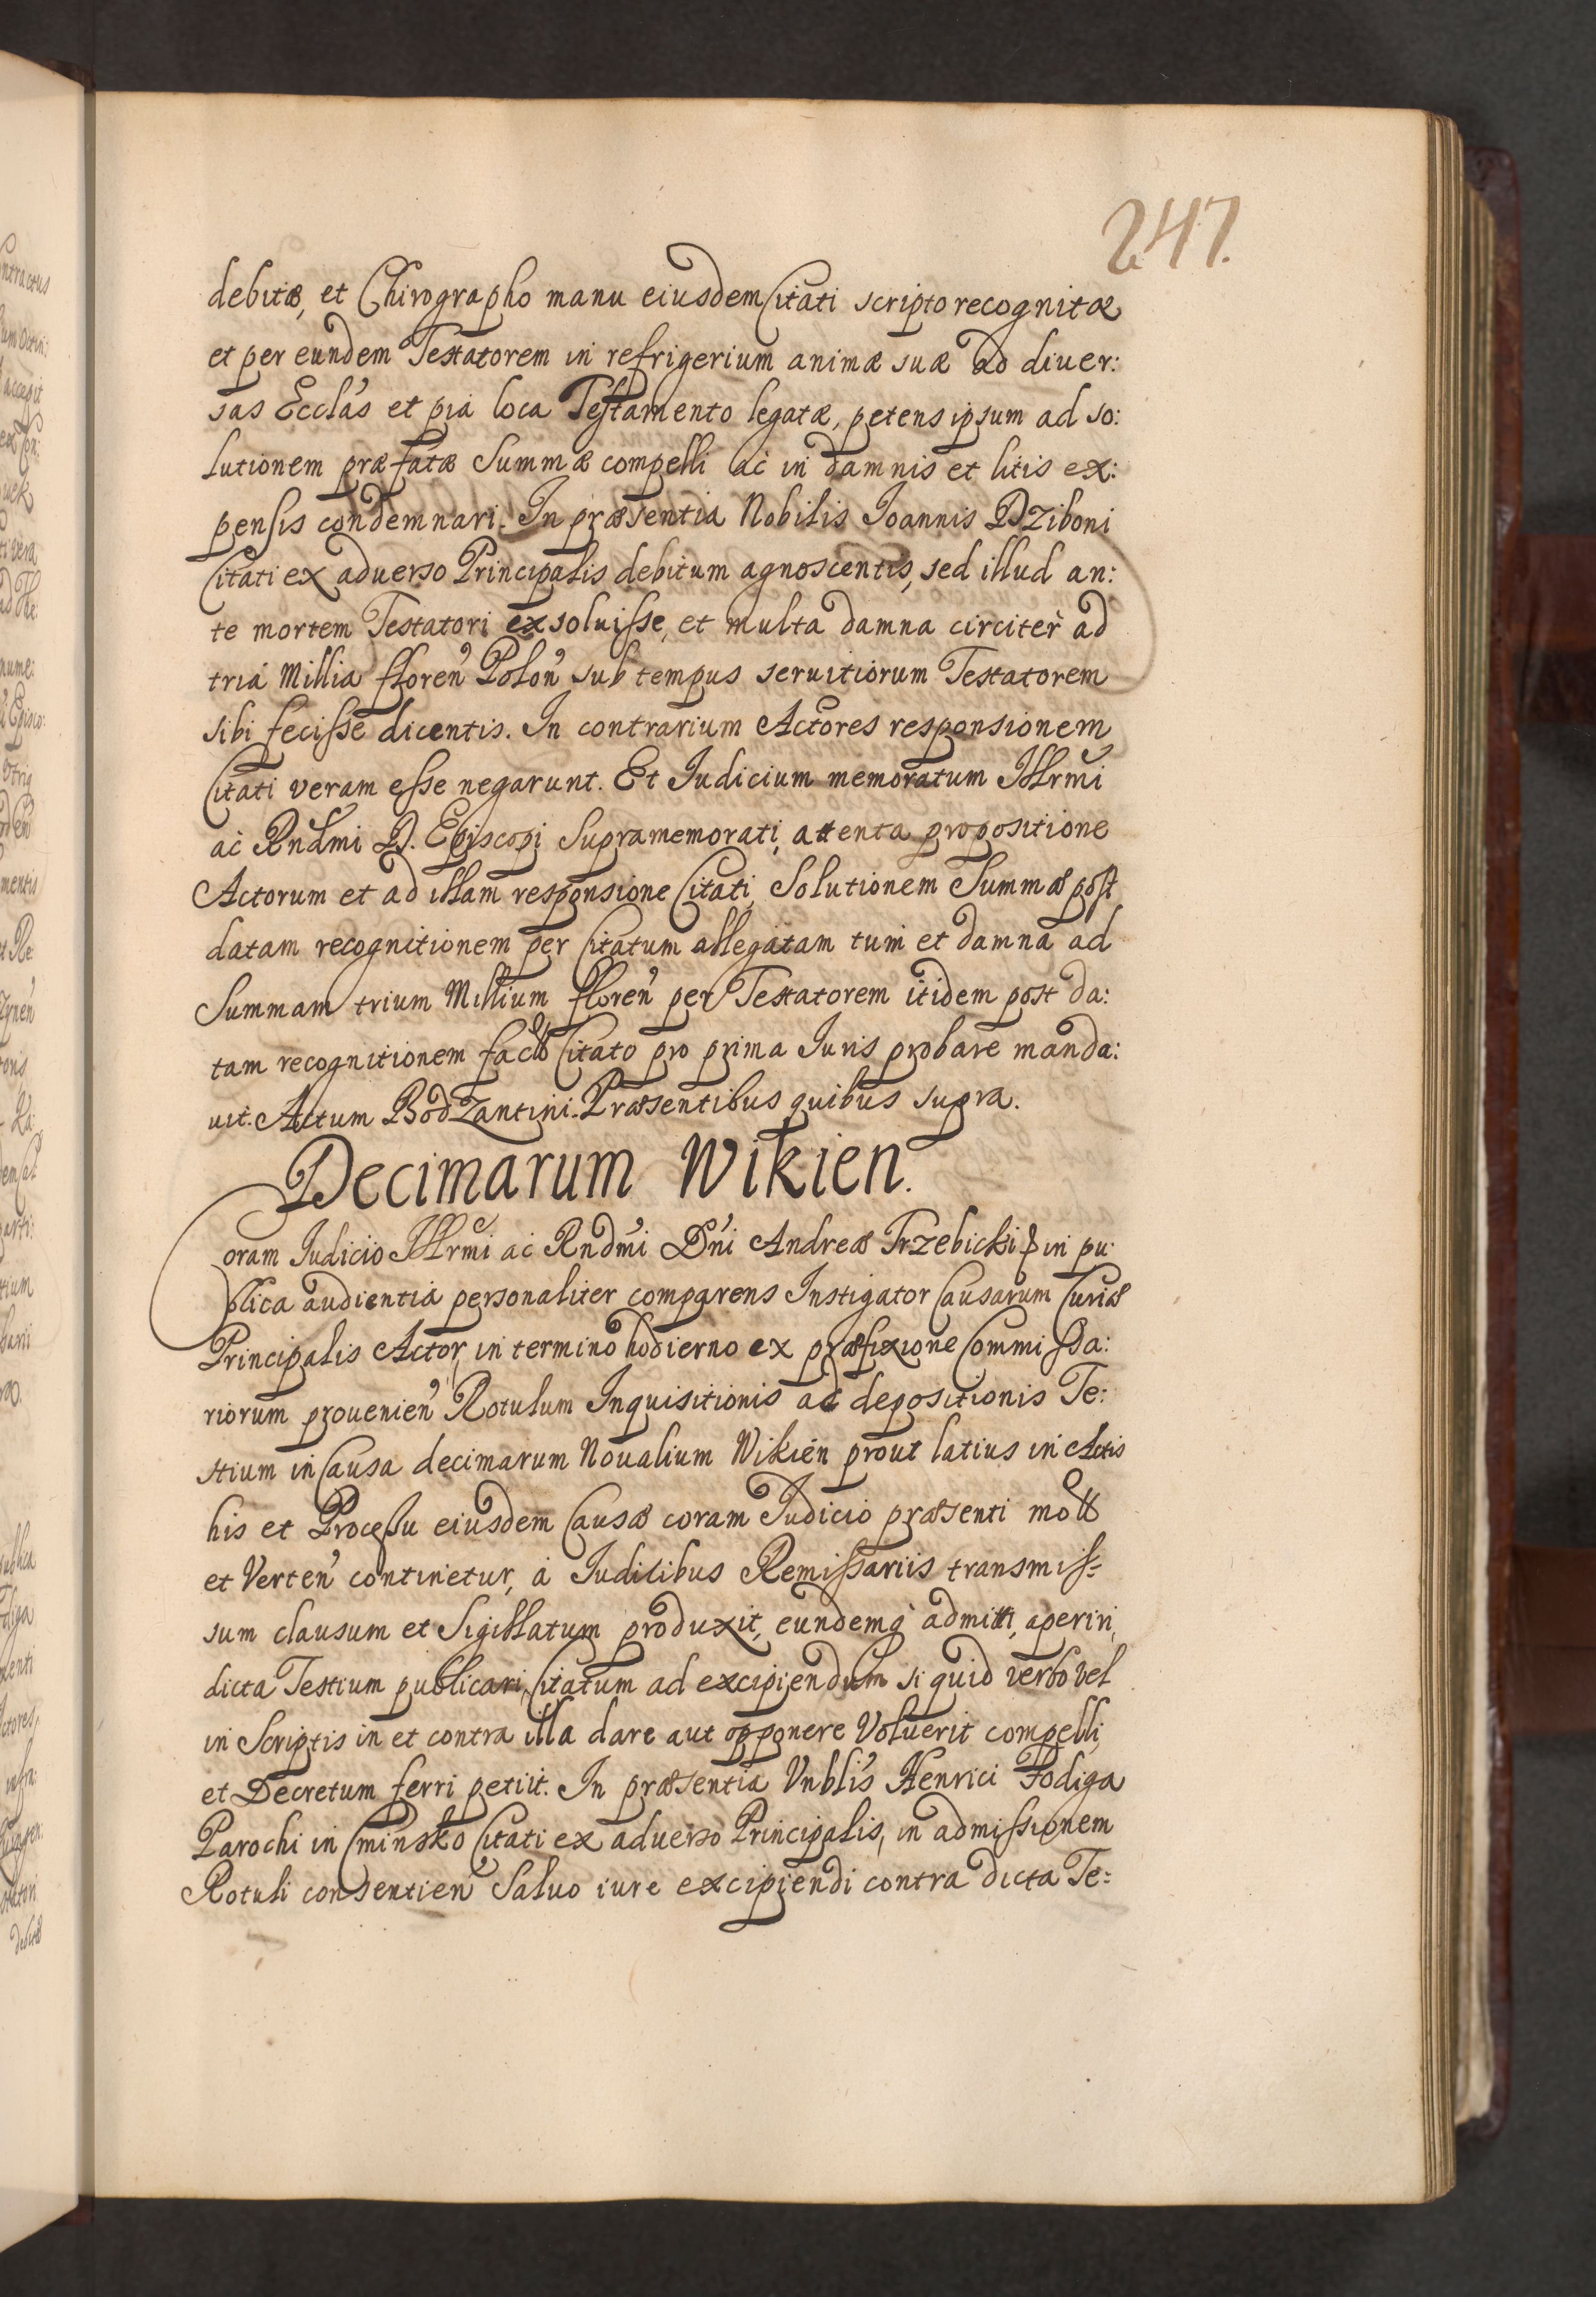 247.
debitæ, et Chirographo manu eiusdem Citati scripto recognitæ
et per eundem Testatorem in refrigerium animæ suæ ad diuer:
sas Ecclás et pia loca Testamento legatæ, petens ipsum ad so:
lutionem præfatæ Summæ compelli ac in damnis et litis ex:
pensis condemnari. In præsentia Nobilis Ioannis Dziboni
Citati ex aduerso Principalis debitum agnoscentis, sed illud an:
te mortem Testatori exsoluisse, et multa damna circiter ad
tria Millia floreń Poloń sub tempus seruitiorum Testatorem
sibi fecisse dicentis. In contrarium Actores responsionem
Citati veram esse negarunt. Et Iudicium memoratum Illrmi
ac Rndmi D. Episcopi supramemorati, attenta propositione
Actorum et ad illam responsione Citati, Solutionem Summæ post
datam recognitionem per Citatum allegatam tum et damna ad
Summam trium Millium floreń per Testatorem itidem post da:
tam recognitionem Citato pro prima Iuris probare manda:
uit. Actum Bodzantini. Præsentibus quibus supra.
Decimarum Wikien.
Coram Iudicio Illrmi ac Rndmi Dni Andreæ Trzebicki in pu:
blica audientia personaliter comparens Instigator Causarum Curiæ
Principalis Actor, in termino hodierno ex præfixione Commissa:
riorum prouenień Rotulum Inquisitionis ac depositionis Te:
stium in Causa decimarum Noualium Wikień prout latius in Actis
his et Processu eiusdem Causæ coram Iudicio præsenti
et Verteń continetur, à Iudicibus Remissariis transmis:
sum clausum et Sigillatum produxit, eundemq admitti, aperiri,
dicta Testium publicari, Citatum ad excipiendum si quid verbo vel
in Scriptis in et contra illa dare aut opponere Voluerit compelli,
et Decretum ferri petiit. In præsentia Vnblis Henrici Fodiga
Parochi in Cminsko Citati ex aduerso Principalis, in admissionem
Rotuli consentień Saluo iure excipiendi contra dicta Te: